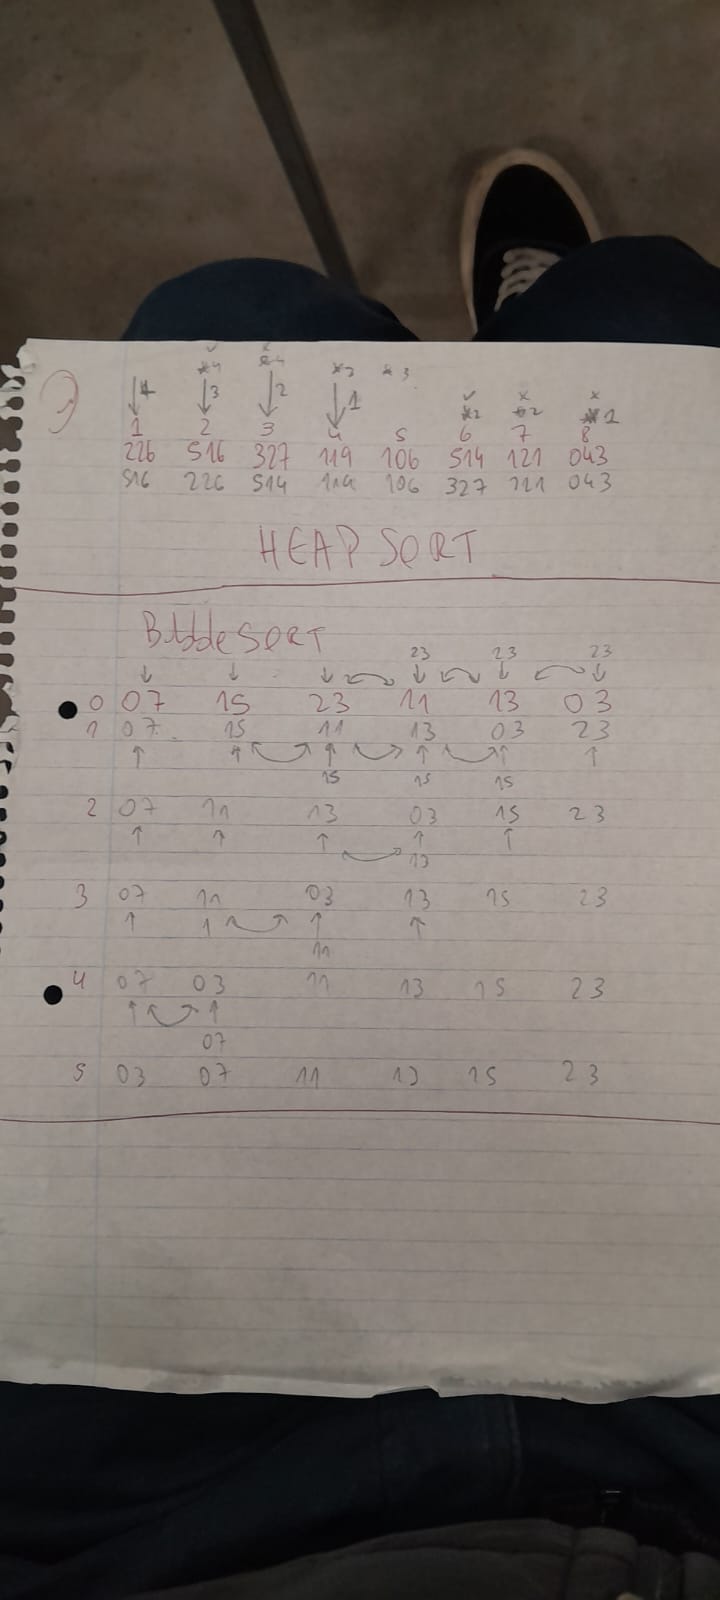 *4 *4 *3 *3
4 3 2 1 *2 *2 *1
1 2 3 4 5 6 7 8
226 516 327 119 106 514 121 043
516 226 514 119 106 327 121 043
HEAP SORT
Bubble SORT
23 23 23
0 07 15 23 11 13 03
1 07 15 11 13 03 23
15 15 15
2 07 11 13 03 15 23
13
3 07 11 03 13 15 23
11
4 07 03 11 13 15 23
07
5 03 07 11 13 15 23